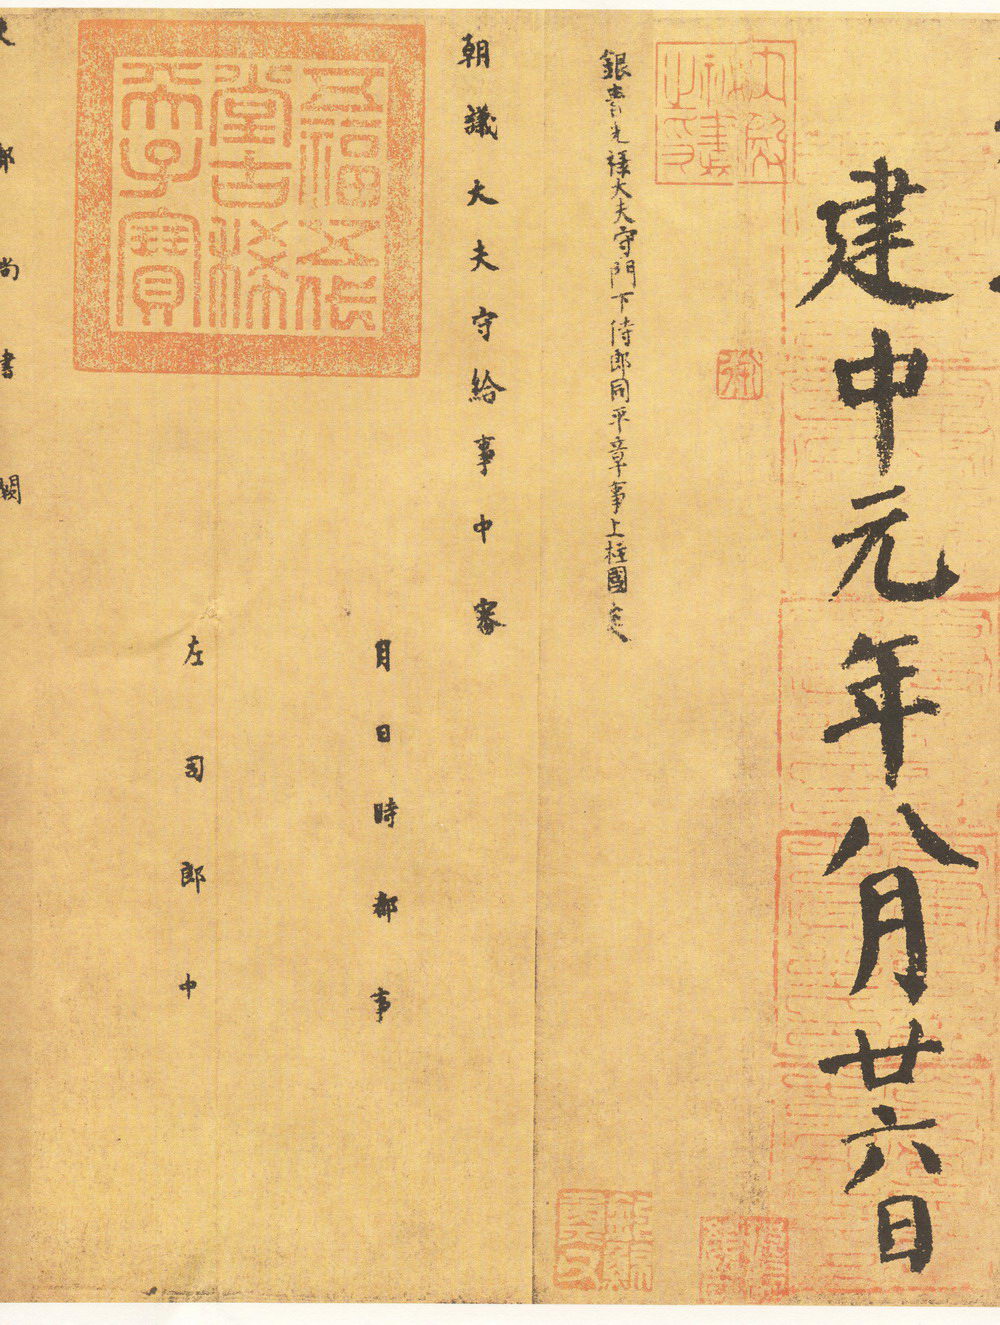 建中元年八月廿六日
銀青光祿大夫守門下侍郎同平章事上柱國
朝議大夫守給事中審
月日時都事
左司郎中
吏部尚書闕
五福五代
堂古稀
天子寶